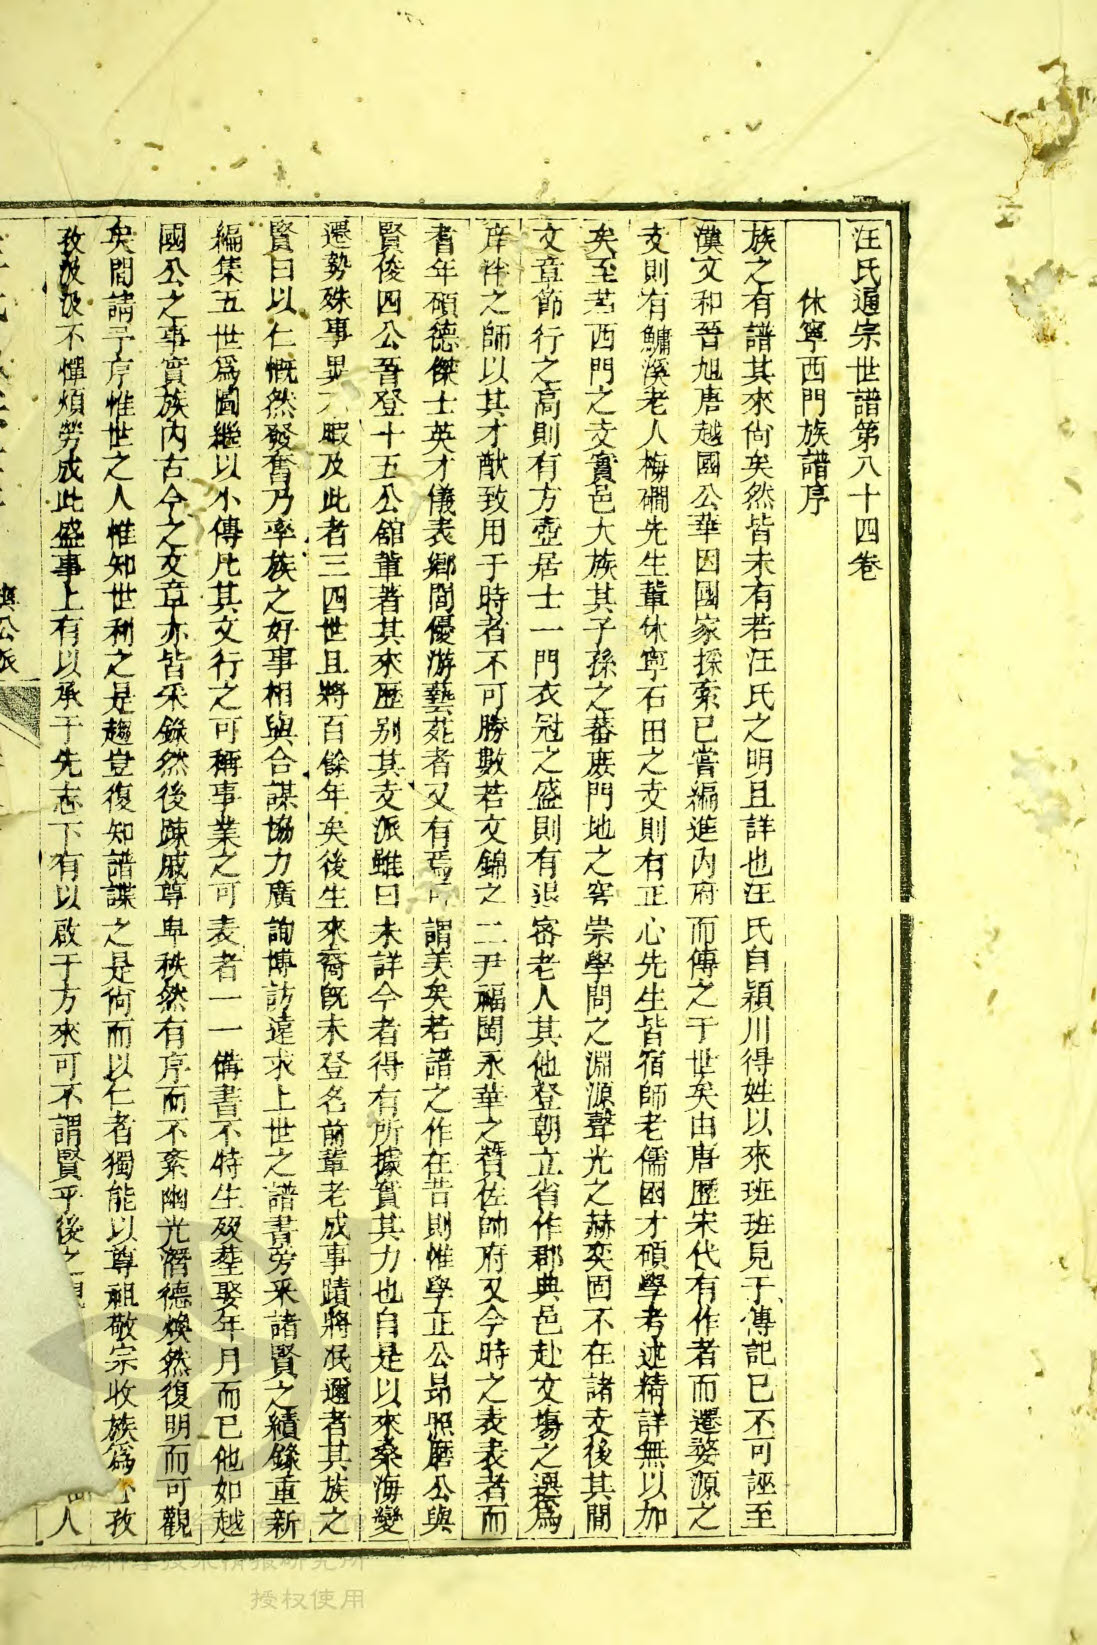 汪氏通宗世譜第八十四卷
休寧西門族譜序
族之有譜其來尙矣然皆未有若汪氏之明且詳也汪氏自頴川得姓以來班班見于傳記已不可誣至
漢文和晉旭唐越國公華因國家探索已嘗編進內府而傳之于世矣由唐歷宋代有作者而遷婺源之
支則有鱅溪老人梅磵先生軰休寧石田之支則有正心先生皆宿師老儒困才碩學考述精詳無以加
矣至若西門之支實邑大族其子孫之蕃庶門地之穹崇學問之淵源聲光之赫奕固不在諸支後其間
文章節行之高則有方壺居士一門衣冠之盛則有退密老人其他登朝立省作郡典邑赴文塲之選爲
庠泮之師以其才猷致用于時者不可勝數若文錦之二尹福閩永華之贊佐帥府又今時之表表者而
耆年碩德傑士英才儀表鄉閭優游藝苑者又有焉可謂美矣若譜之作在昔則惟學正公昻照磨公與
賢俊四公晉登十五公舘軰著其來歷别其支派雖曰未詳今者得有所據實其力也自是以來桑海變
遷勢殊事異 暇及此者三四世且將百餘年矣後生來裔旣未登名前軰老成事蹟將泯邇者其族之
賢曰以仁慨然發奮乃率族之好事相與合謀協力廣詢博訪遠求上世之譜書旁采諸賢之績錄重新
編集五世爲圖繼以小傳凡其文行之可稱事業之可表者一一備書不特生歿塟娶年月而已他如越
國公之事實族內古今之文章亦皆采錄然後踈戚尊卑秩然有序而不紊幽光潛德煥然復明而可觀
矣間請予序惟世之人惟知世利之是趨豈復知譜諜之是尙而以仁者獨能以尊祖敬宗收族爲 孜
孜汲汲不憚煩勞成此盛事上有以承于先志下有以啟于方來可不謂賢乎後之 人
公派
上海科學技术情报研究所
授权使用